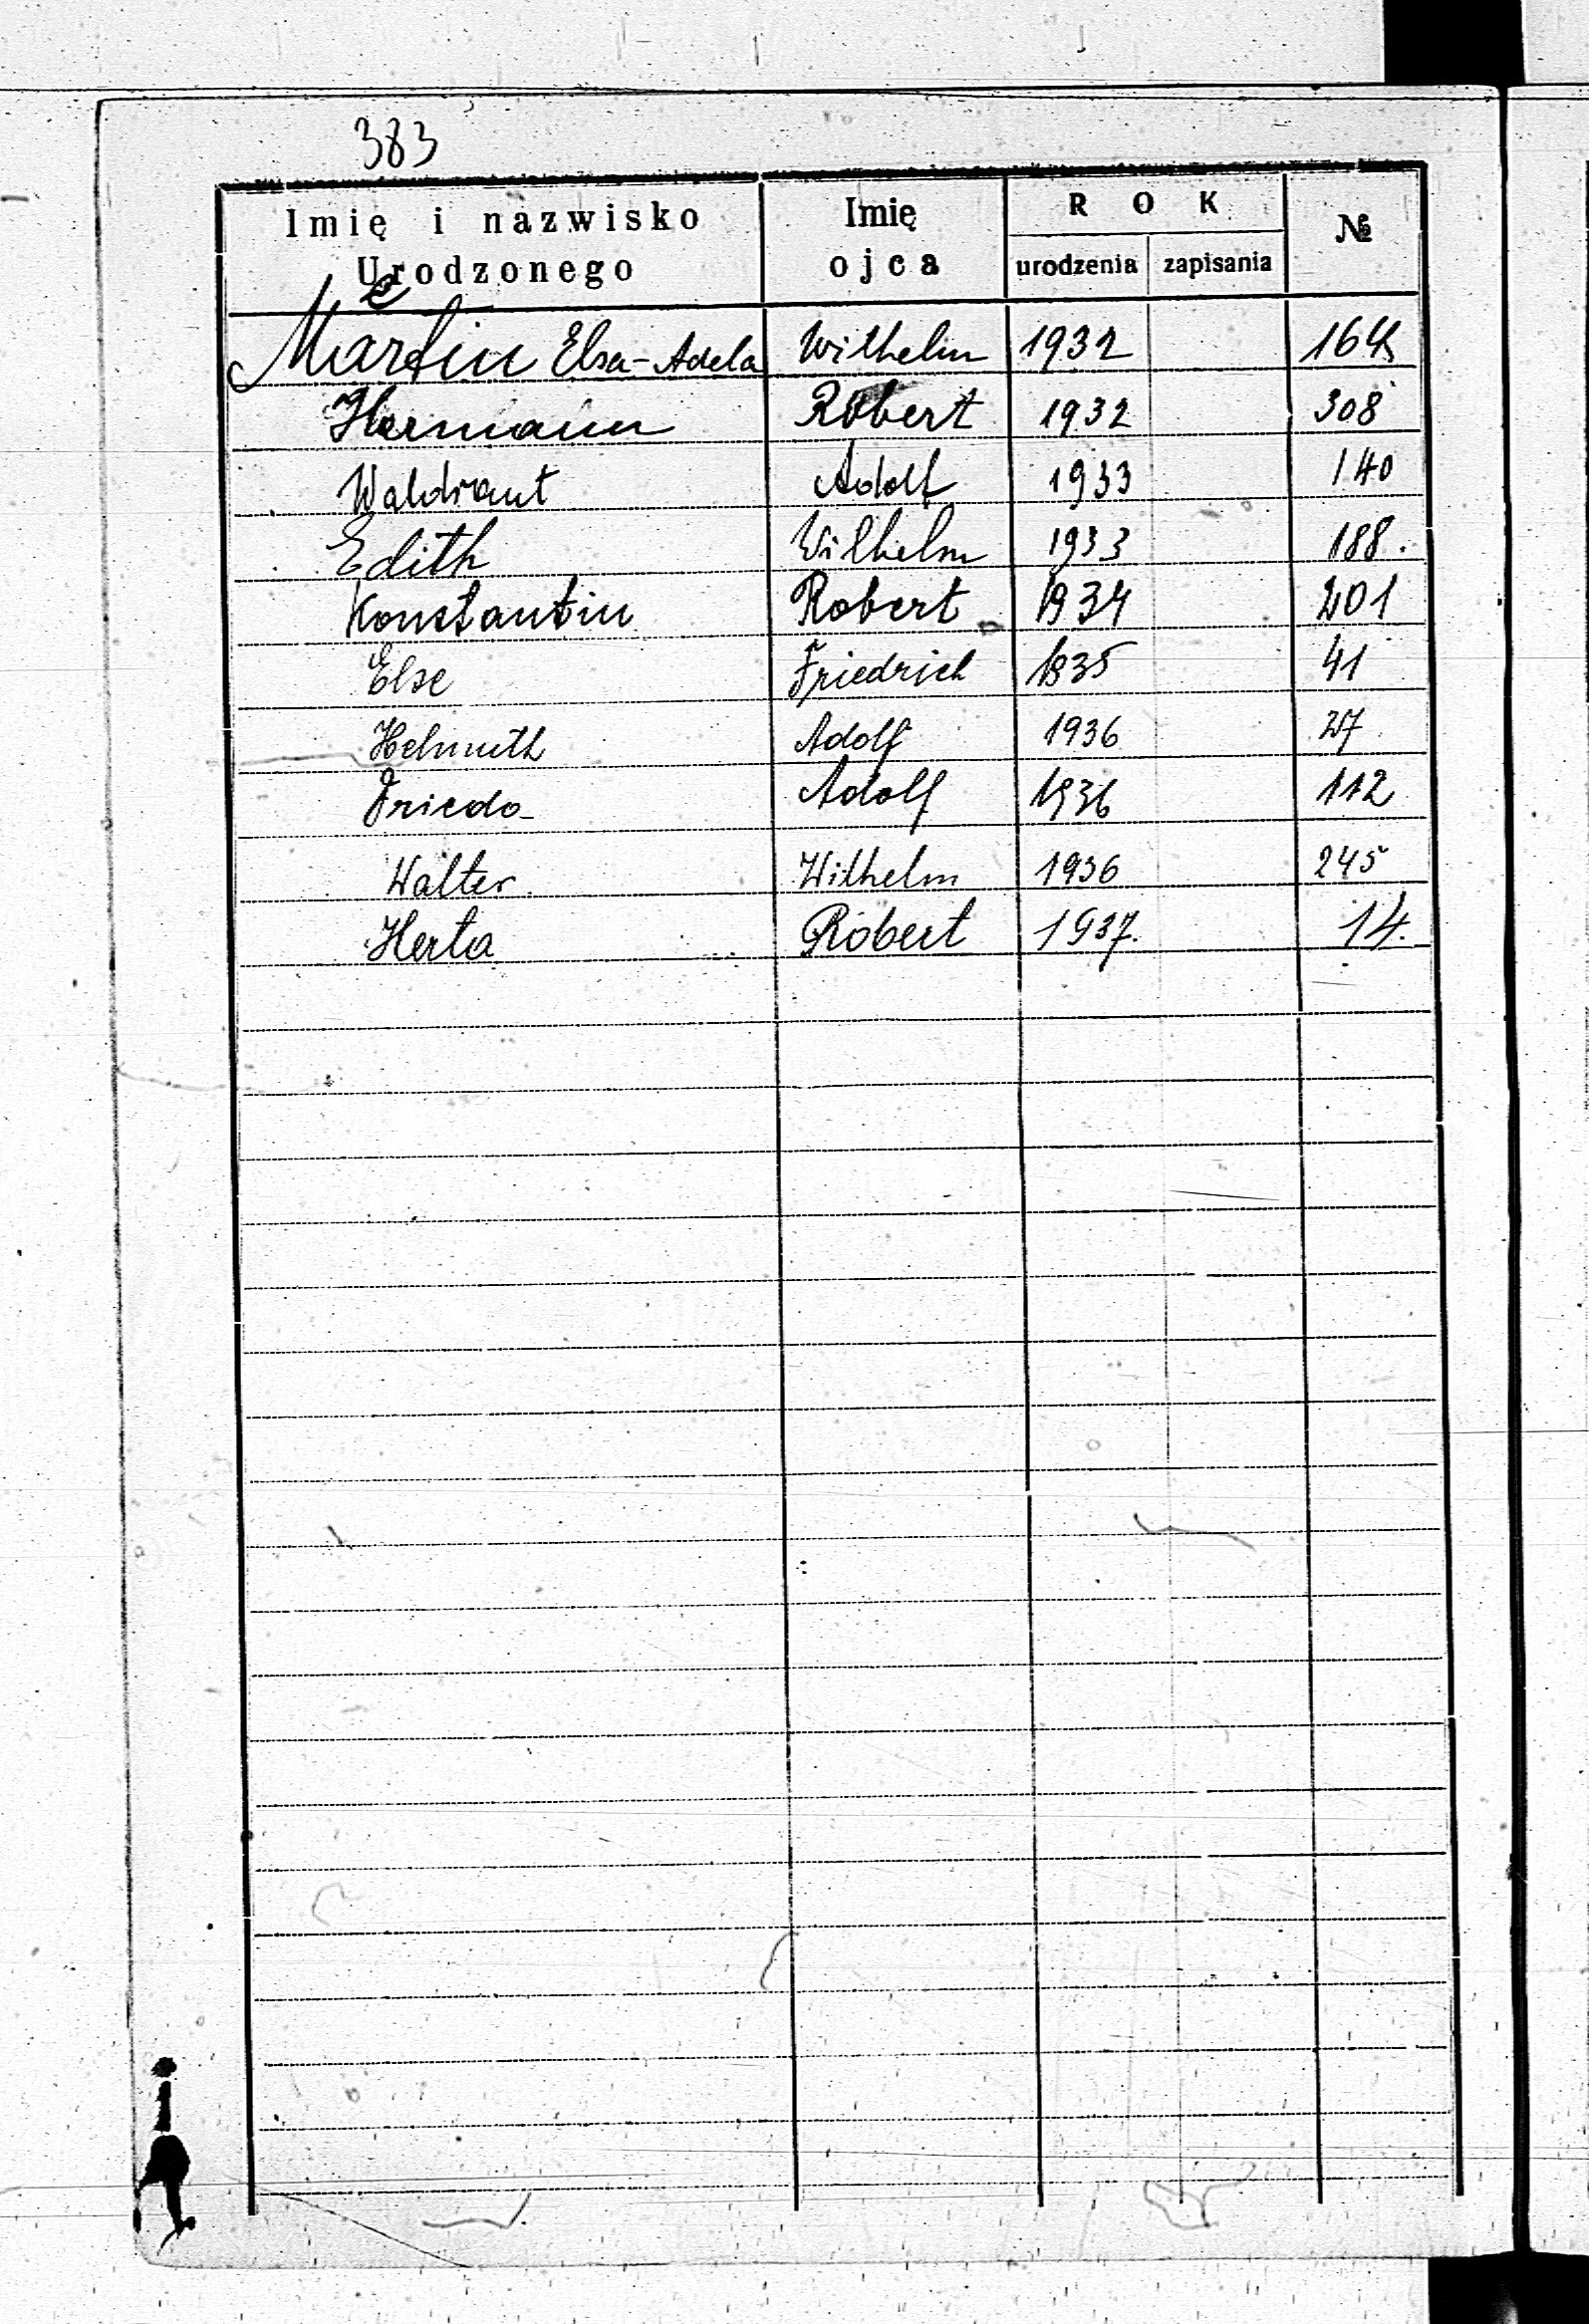 383
Imię i nazwisko Urodzonego Imię ojca ROK urodzenia zapisania №
Martin Elsa-Adela Wilhelm 1932 164
Hermann Robert 1932 308
Waldraut Adolf 1933 140
Edith Wilhelm 1933 188.
Konstantin Robert 1934 201
Else Friedrich 1935 41
Helmuth Adolf 1936 27
Frieda Adolf 1936 112
Walter Wilhelm 1936 245
Herta Robert 1937. 14.